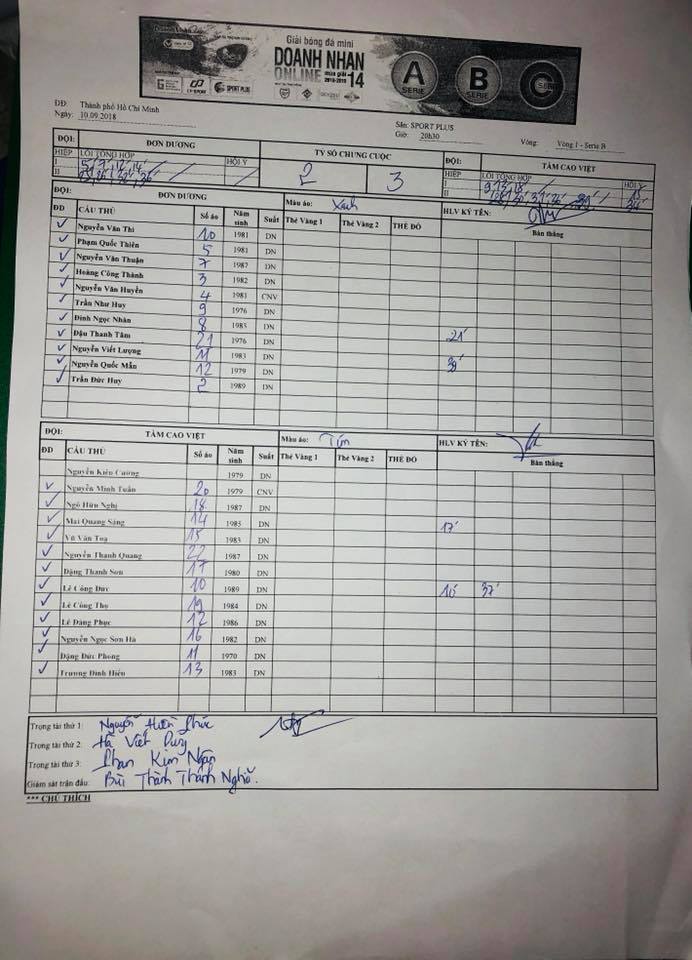 Giải bóng đá mini
DOANH NHAN
ONLINE mùa giải 2018-2019 14
A SERIE
B SERIE
C SERIE
SPORT PLUS
DĐ: Thành phố Hồ Chí Minh
Ngày: 10.09.2018
Sân: SPORT PLUS
Giờ: 20h30
Vòng: Vòng 1 - Serie B
ĐỘI: ĐƠN DƯƠNG TỶ SỐ CHUNG CUỘC ĐỘI: TÂM CAO VIỆT
HIỆP LỖI TỔNG HỢP HỘI Ý 2 3 HIỆP LỖI TỔNG HỢP HỘI Ý
I 5' 7' 12' 14' I 9' 13' 18'
II II 34'
ĐỘI: ĐƠN DƯƠNG Màu áo: Xanh HLV KÝ TÊN:
ĐD CẦU THỦ Số áo Năm sinh Suất Thẻ Vàng 1 Thẻ Vàng 2 THẺ ĐỎ Bàn thắng
Nguyễn Văn Thi 10 1981 DN
Phạm Quốc Thiên 5 1981 DN
Nguyễn Văn Thuận 7 1987 DN
Hoàng Công Thành 3 1982 DN
Nguyễn Văn Huyền 4 1981 CNV
Trần Như Huy 9 1976 DN
Đinh Ngọc Nhân 8 1983 DN
Đậu Thanh Tâm 21 1976 DN 21'
Nguyễn Viết Lượng 11 1983 DN
Nguyễn Quốc Mẫn 12 1979 DN 39'
Trần Đức Huy 2 1989 DN
ĐỘI: TÂM CAO VIỆT Màu áo: Tím HLV KÝ TÊN:
ĐD CẦU THỦ Số áo Năm sinh Suất Thẻ Vàng 1 Thẻ Vàng 2 THẺ ĐỎ Bàn thắng
Nguyễn Kiên Cường 1979 DN
Nguyễn Minh Tuấn 20 1979 CNV
Ngô Hữu Nghị 18 1987 DN
Mai Quang Sáng 14 1985 DN 17'
Vũ Văn Toạ 15 1983 DN
Nguyễn Thanh Quang 22 1987 DN
Đặng Thanh Sơn 17 1980 DN
Lê Công Đức 10 1989 DN 10' 37'
Lê Công Thọ 19 1984 DN
Lê Đăng Phục 12 1986 DN
Nguyễn Ngọc Sơn Hà 16 1982 DN
Đặng Đức Phong 11 1970 DN
Trương Đình Hiếu 13 1983 DN
Trọng tài thứ 1: Nguyễn Phúc
Trọng tài thứ 2: Hà Viết Duy
Trọng tài thứ 3: Phan Kim Ngân
Giám sát trận đấu: Bùi Thành Thành Nghĩa.
*** CHÚ THÍCH